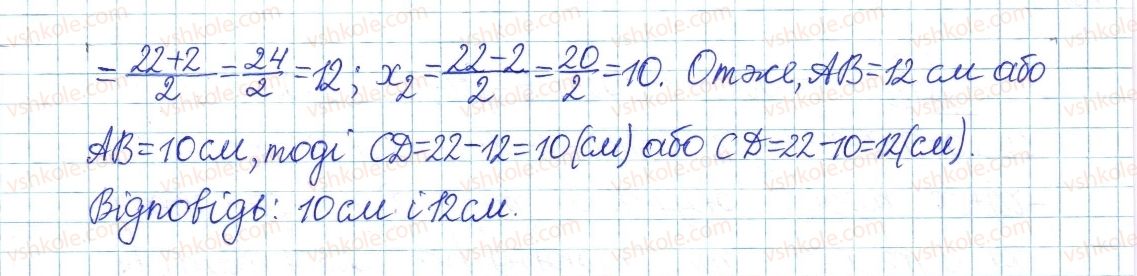 = \frac{22+2}{2} = \frac{24}{2} = 12; x_2 = \frac{22-2}{2} = \frac{20}{2} = 10. Отже, AB = 12 см або
AB = 10 см, тоді CD = 22 - 12 = 10 (см) або CD = 22 - 10 = 12 (см).
Відповідь: 10 см і 12 см.